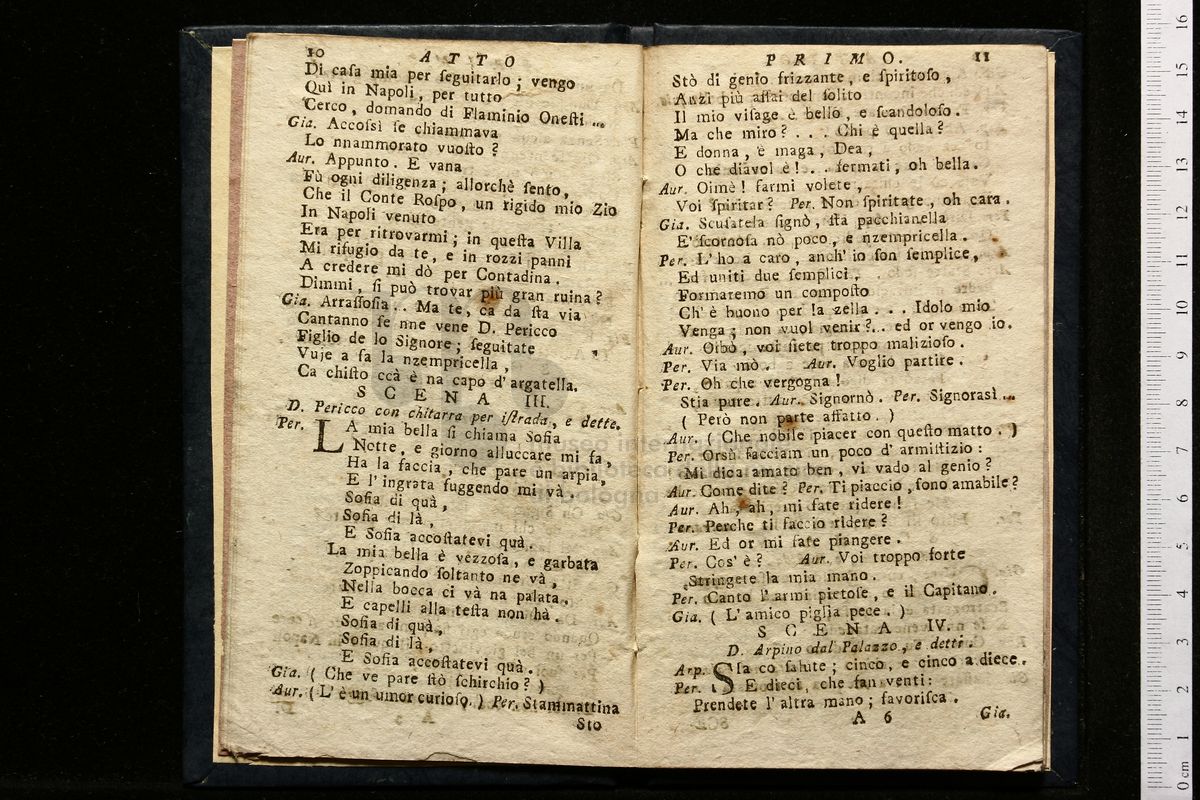 10 ATTO
Di casa mia per seguitarlo ; vengo
Quì in Napoli, per tutto
Cerco, domando di Flaminio Onesti ...
Gia. Accossì se chiammava
Lo nnammorato vuosto ?
Aur. Appunto. E vana
Fù ogni diligenza ; allorchè sento,
Che il Conte Rospo, un rigido mio Zio
In Napoli venuto
Era per ritrovarmi ; in questa Villa
Mi rifugio da te, e in rozzi panni
A credere mi dò per Contadina.
Dimmi, si può trovar più gran ruina ?
Gia. Arrassosia .. Ma te, ca da sta via
Cantanno se nne vene D. Pericco
Figlio de lo Signore ; seguitate
Vuje a fa la nzempricella,
Ca chisto ccà è na capo d'argatella.
SCENA III.
D. Pericco con chitarra per istrada, e dette.
Per. LA mia bella si chiama Sofia
Notte, e giorno alluccare mi fa,
Ha la faccia, che pare un arpia,
E l'ingrata fuggendo mi và.
Sofia di quà,
Sofia di là,
E Sofia accostatevi quà.
La mia bella è vezzosa, e garbata
Zoppicando soltanto ne và,
Nella bocca ci và na palata,
E capelli alla testa non hà.
Sofia di quà,
Sofia di là,
E Sofia accostatevi quà.
Gia. ( Che ve pare stò schirchio ? )
Aur. ( L'è un umor curioso. ) Per. Stammattina
Sto
PRIMO. 11
Stò di genio frizzante, e spiritoso,
Anzi più assai del solito
Il mio visage è bello, e scandoloso.
Ma che miro ? . . . Chi è quella ?
E donna, è maga, Dea,
O che diavol è ! . . fermati, oh bella.
Aur. Oimè ! farmi volete,
Voi spiritar ? Per. Non spiritate, oh cara.
Gia. Scusatela signò, stà pacchianella
E' scornosa nò poco, e nzempricella.
Per. L'ho a caro, anch'io son semplice,
Ed uniti due semplici,
Formaremo un composto
Ch'è buono per la zella . . . Idolo mio
Venga ; non vuol venir ?.. ed or vengo io.
Aur. Oibò, voi siete troppo malizioso.
Per. Via mò. Aur. Voglio partire.
Per. Oh che vergogna !
Stia pure. Aur. Signornò. Per. Signorasì ...
( Però non parte affatto. )
Aur. ( Che nobile piacer con questo matto. )
Per. Orsù facciam un poco d'armistizio :
Mi dica amato ben, vi vado al genio ?
Aur. Come dite ? Per. Ti piaccio, sono amabile ?
Aur. Ah, ah, mi fate ridere !
Per. Perche ti faccio ridere ?
Aur. Ed or mi fate piangere.
Per. Cos'è ? Aur. Voi troppo forte
Stringete la mia mano.
Per. Canto l'armi pietose, e il Capitano.
Gia. ( L'amico piglia pece. )
SCENA IV.
D. Arpino dal Palazzo, e detti.
Arp. SIa co salute ; cinco, e cinco a diece.
Per. E dieci, che fan venti :
Prendete l'altra mano ; favorisca.
A 6 Gia.